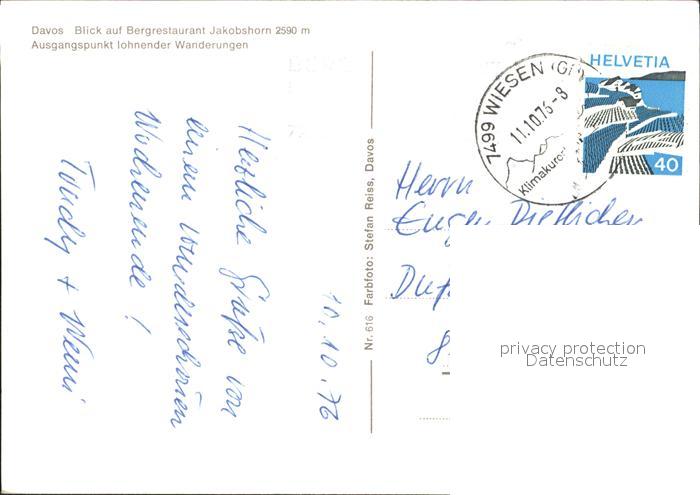 Davos Blick auf Bergrestaurant Jakobshorn 2590 m
Ausgangspunkt lohnender Wanderungen
10.10.76
Herzliche Grüsse von
einem wunderschönen
Wochenende!
Trudy + Werni
Nr. 616 Farbfoto: Stefan Reiss, Davos
7499 WIESEN (GR)
11.10.76-8
Klimakuror
HELVETIA
40
Herrn
Eugen
8
privacy protection
Datenschutz